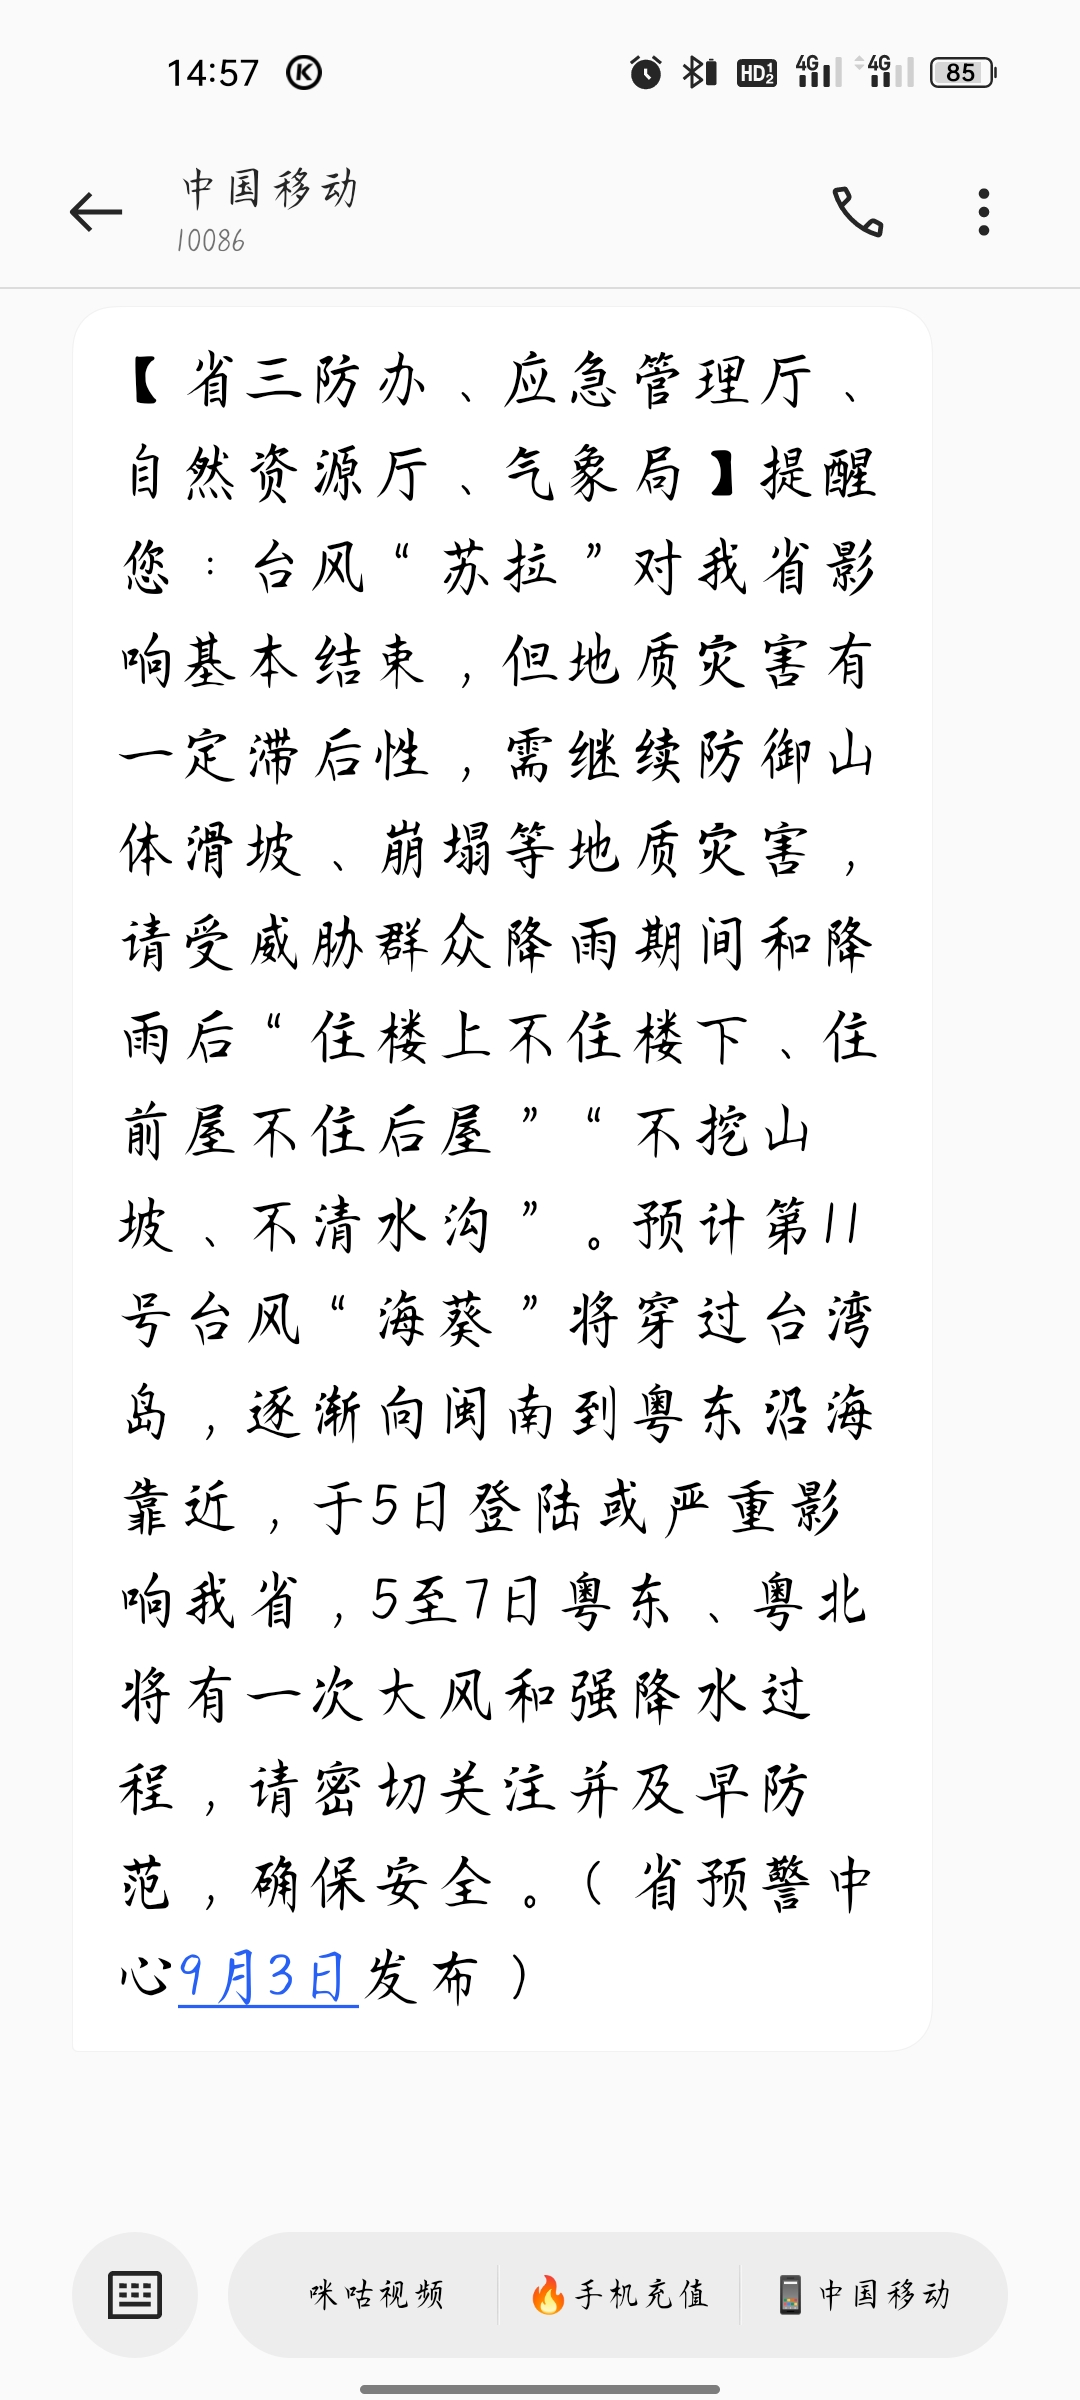 14:57
HD 1 2
4G
4G
85
中国移动
10086
【省三防办、应急管理厅、
自然资源厅、气象局】提醒
您：台风“苏拉”对我省影
响基本结束，但地质灾害有
一定滞后性，需继续防御山
体滑坡、崩塌等地质灾害，
请受威胁群众降雨期间和降
雨后“住楼上不住楼下、住
前屋不住后屋”“不挖山
坡、不清水沟”。预计第11
号台风“海葵”将穿过台湾
岛，逐渐向闽南到粤东沿海
靠近，于5日登陆或严重影
响我省，5至7日粤东、粤北
将有一次大风和强降水过
程，请密切关注并及早防
范，确保安全。（省预警中
心9月3日发布）
咪咕视频
手机充值
中国移动